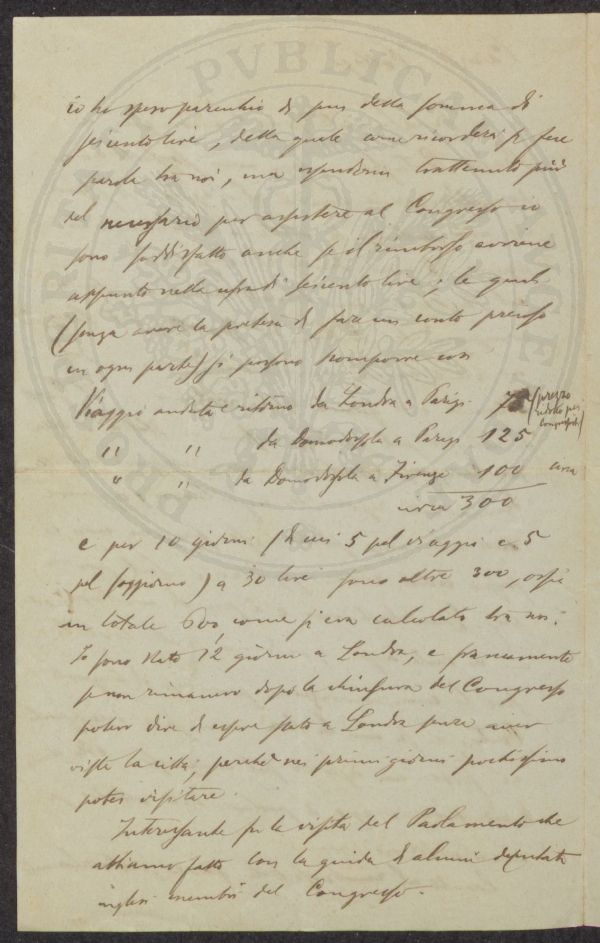 io ho speso parecchio di più della somma di
seicento lire, della quale come ricorderà si fece
parola tra noi, ma essendomi trattenuto più
del necessario per assistere al Congresso io
sono soddisfatto anche se il rimborso avviene
appunto nella misura di seicento lire; le quali
(senza avere la pretesa di fare un conto preciso
in ogni parte) si possono scomporre così
Viaggio andata e ritorno da Londra a Parigi 75 (prezzo ridotto pei Congressisti)
" " da Domodossola a Parigi 125
" " da Domodossola a Firenze 100 circa
circa 300
e per 10 giorni (di cui 5 pel viaggio e 5
pel soggiorno) a 30 lire sono altre 300, ossia
in totale 600 come si era calcolato tra noi.
Io sono stato 12 giorni a Londra, e francamente
se non rimanevo dopo la chiusura del Congresso
potevo dire di essere stato a Londra senza aver
visto la città, perchè nei primi giorni pochissimo
potei visitare.
Interessante fu la visita del Parlamento che
abbiamo fatto con la guida di alcuni deputati
inglesi membri del Congresso.
PVBLICA